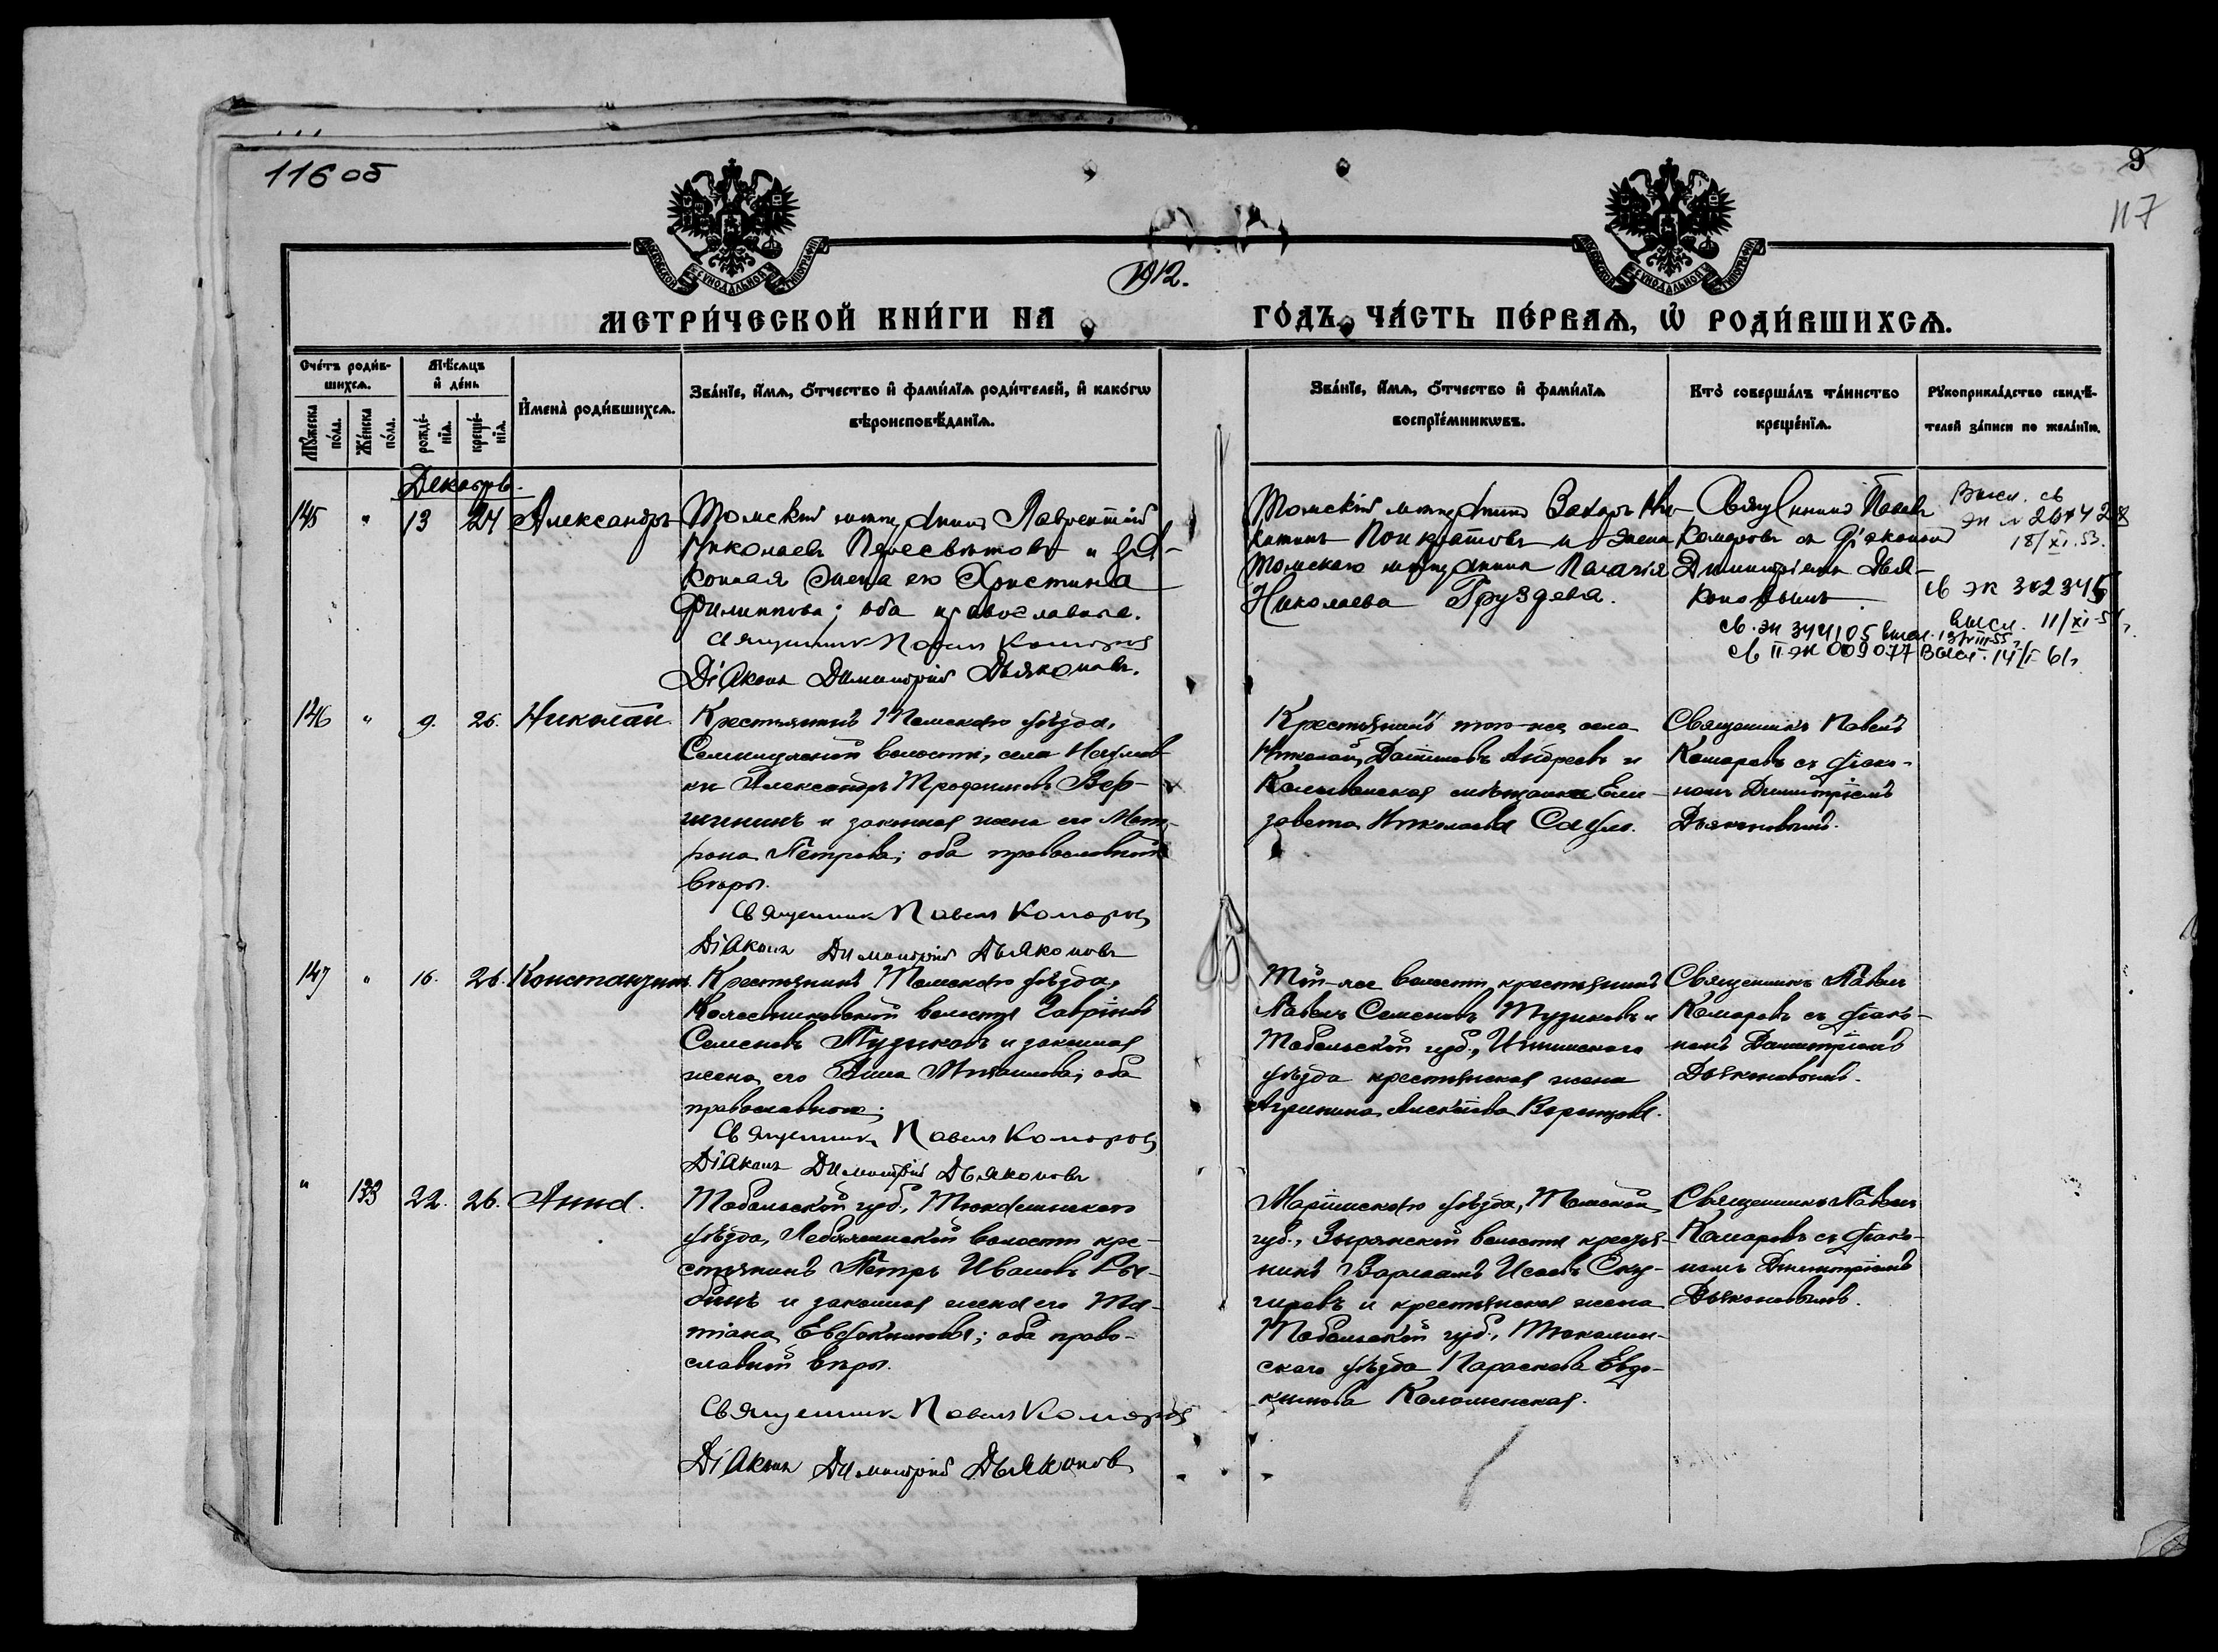 116 об
9
117
МОСКОВСКОЙ СѴНОДАЛЬНОЙ ТИПОГРАФІИ
МОСКОВСКОЙ СѴНОДАЛЬНОЙ ТИПОГРАФІИ
1912.
МЕТРИ́ЧЕСКОЙ КНИ́ГИ НА ГО́ДЪ, ЧА́СТЬ ПЕ́РВАѦ, Ѡ҆ РОДИ́ВШИХСѦ.
Сче́тъ роди́в-
шихсѧ.
Мꙋ́жеска по́ла.
Же́нска по́ла.
Мѣ́сѧцъ
и҆ де́нь
рожде́-
нїѧ.
креще́-
нїѧ.
И҆мена̀ роди́вшихсѧ.
Зва́нїе, и҆́мѧ, ѻ҆́тчество и҆ фами́лїѧ роди́телей, и҆ како́гѡ
вѣроисповѣ́данїѧ.
Зва́нїе, и҆́мѧ, ѻ҆́тчество и҆ фами́лїѧ
воспрїе́мникѡвъ.
Кто̀ соверша́лъ та́инство
креще́нїѧ.
Рꙋкоприкла́дство свидѣ́-
телей за́писи по жела́нїю.
Декабрь.
145 " 13 24 Александръ
Томскій мѣщанинъ Лаврентій
Николаевъ Пересвѣтовъ и за-
конная жена его Христина
Филиппова; оба православные.
Священникъ Павелъ Комаровъ
Діаконъ Димитрій Дьяконовъ.
Томскій мѣщанинъ Захаръ
Понкратовъ и жена
Томскаго мѣщанина Палагія
Николаева Груздева.
Священникъ Павелъ
Комаровъ съ діакономъ
Димитріемъ Дья-
коновымъ.
Высл. св
18/XI.53.
св эк 302345
высл. 11/XI-5
св. эк 344105 высл. 13/VIII-55
св II эк 009077 Высл. 14/I-61г
146 " 9. 26. Николай
Крестьянинъ Томскаго уѣзда,
волости, села Наумов-
ки Александръ Вер-
шининъ и законная жена его Мат-
рона Петрова; оба православной
вѣры.
Священникъ Павелъ Комаровъ
Діаконъ Димитрій Дьяконовъ
Крестьянинъ того-же села
Николай Андреевъ и
Колыванская мѣщанка Ели-
завета Николаева
Священникъ Павелъ
Комаровъ съ діако-
номъ Димитріемъ
Дьяконовымъ.
147 " 16. 26. Константинъ.
Крестьянинъ Томскаго уѣзда,
волости Гавріилъ
Семеновъ Пузиковъ и законная
жена его Анна; оба
православной;
Священникъ Павелъ Комаровъ
Діаконъ Димитрій Дьяконовъ
Той-же волости крестьянинъ
Павелъ Семеновъ Пузиковъ и
Тобольской губ., Ишимскаго
уѣзда крестьянская жена
Агрипина
Священникъ Павелъ
Комаровъ съ діако-
номъ Димитріемъ
Дьяконовымъ.
" 133 22. 26. Анна.
Тобольской губ., Тюкалинскаго
уѣзда, волости кре-
стьянинъ Петръ Ивановъ Ря-
бинъ и законная жена его Та-
тіана Евдокимова; оба право-
славной вѣры.
Священникъ Павелъ Комаровъ
Діаконъ Димитрій Дьяконовъ
Маріинскаго уѣзда, Томской
губ., Зырянской волости крестья-
нинъ Варлаамъ Исаевъ
и крестьянская жена
Тобольской губ., Тюкалин-
скаго уѣзда Параскева Евдо-
кимова Коломенская.
Священникъ Павелъ
Комаровъ съ діако-
номъ Димитріемъ
Дьяконовымъ.